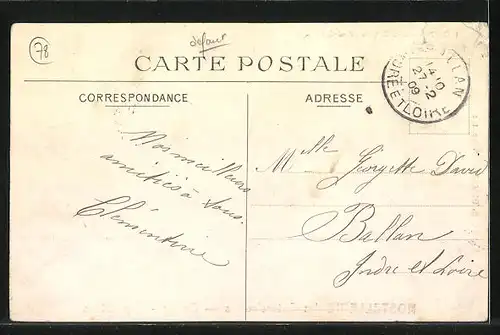 78
défaut
CARTE POSTALE
CORRESPONDANCE
ADRESSE
BALLAN
14-10
27 -2
09
INDRE ET LOIRE
Nos meilleurs
amitiés à tous.
Clémentine
Mlle Georgette David
Ballan
Indre et Loire